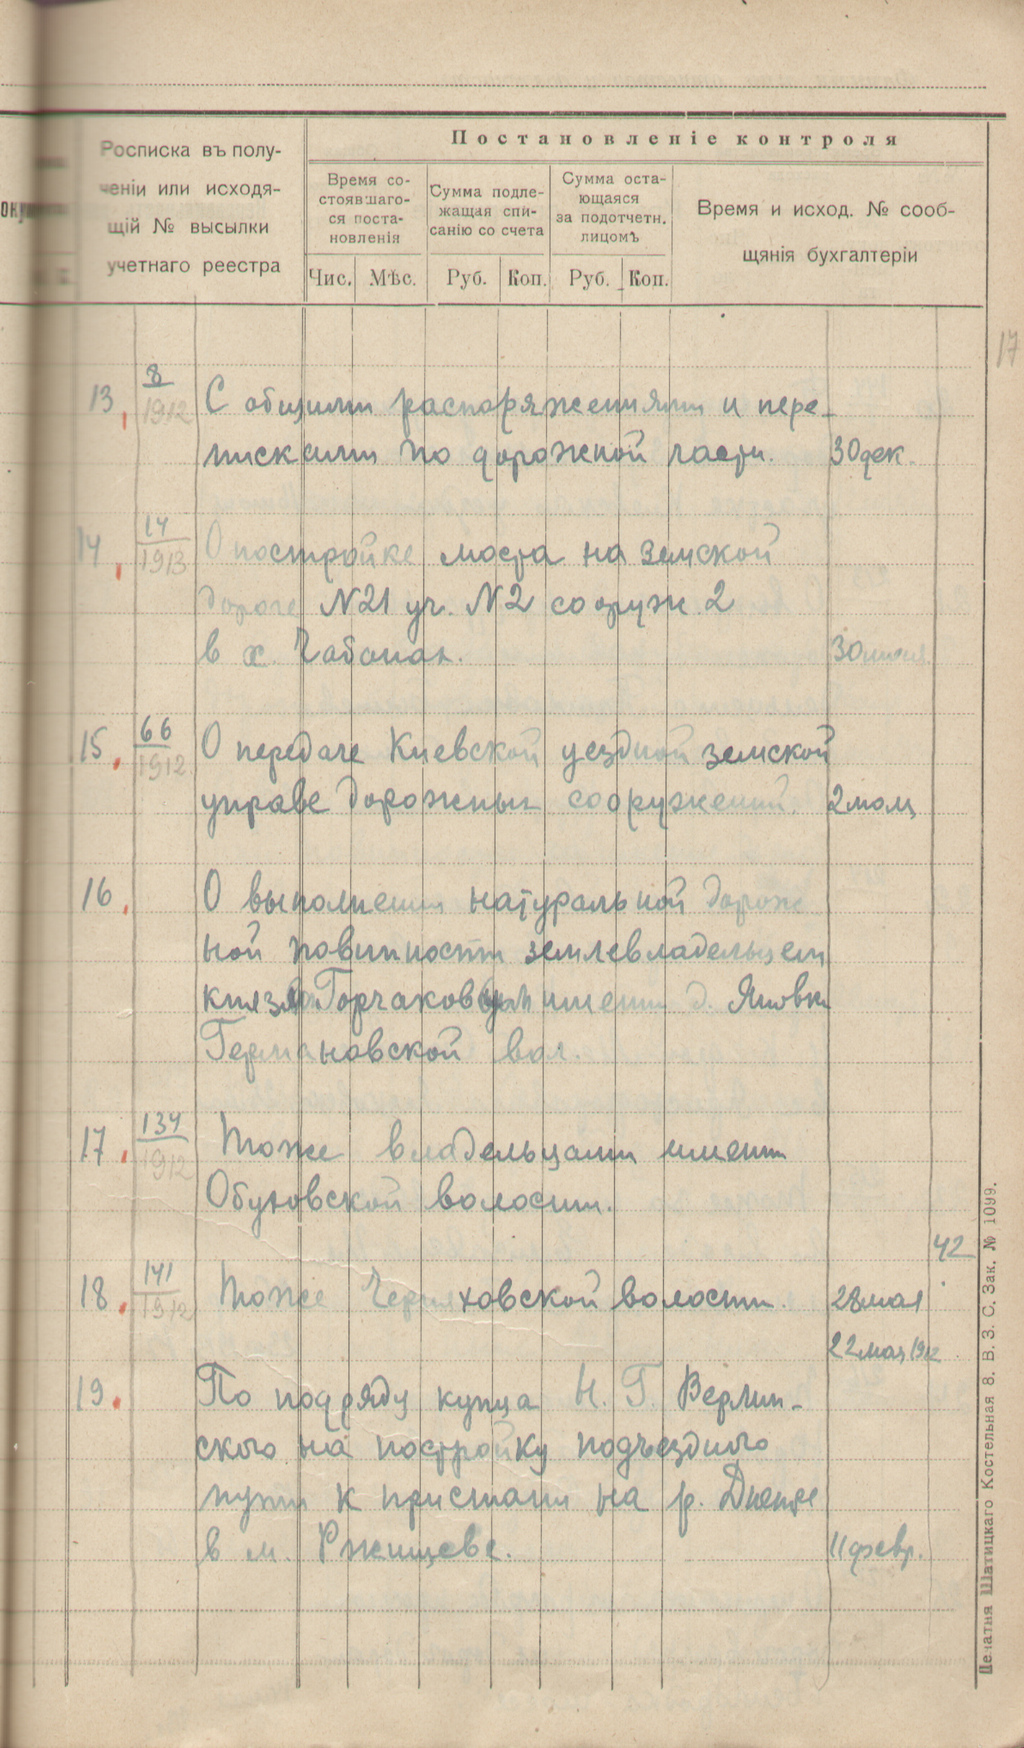 Росписка въ полу-
ченіи или исходя-
щій № высылки
учетнаго реестра
Постановленіе контроля
Время со-
стоявшаго-
ся поста-
новленія
Сумма подле-
жащая спи-
санію со счета
Сумма оста-
ющаяся
за подотчетн.
лицомъ
Время и исход. № сооб-
щянія бухгалтеріи
Чис. Мѣс. Руб. Коп. Руб. Коп.
17
13, 8/1912 С общими распоряжениями и пере-
писками по дорожной части. 30 дек.
14, 14/1913 О постройке моста на земской
дороге N21 уч. N2 сооруж 2
в х. Чабанах. 30
15, 66/1912 О передаче Киевской уездной земской
управе дорожных сооружений. 2
16, О выполнении натуральной дорож
ной повинности землевладельцем
Горчаковым имении д. Яновке
Германовской вол.
17, 134/1912 Тоже владельцами имении
Обуховской волости.
42
18, 141/1912 Тоже Черняховской волости. 28 мая
22 мая 1912
19. По подряду купца Н. Г. Верлин-
ского на постройку подъездного
пути к пристани на р. Днепре
в м. Ржищеве. 11 февр.
Печатня Шатицкаго Костельная 8. В. З. С. Зак. № 1099.